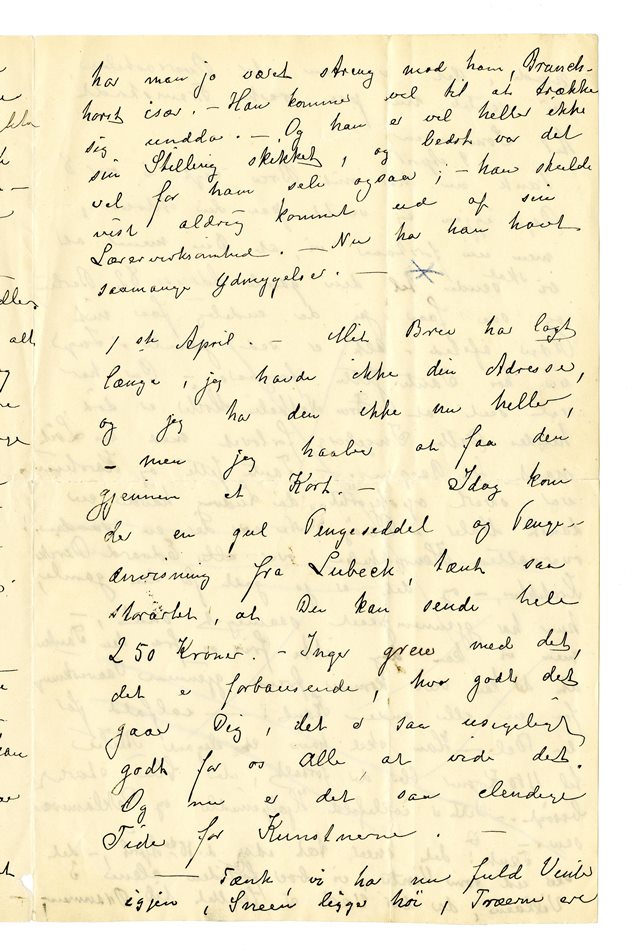 har man jo været streng mod ham, Branch-
horst især. – Han kommer vel til at trække
sig undda. – Og han er vel heller ikke
sin Stilling skikket, og bedst var det
vel for ham selv ogsaa; – han skulde
vist aldrig kommet ud af sin
Lærervirksomhed. – Nu har han havt
saamange Ydmygelser. –
1ste April. – Mit Brev har lagt
længe, jeg havde ikke din Adresse,
og jeg har den ikke nu heller,
– men jeg haaber at faa den
gjennem et Kort. – Idag kom
der en gul Pengeseddel og Penge-
anvisning fra Lübeck, tænk saa
storartet, at Du kan sende hele
250 Kroner. – Inger greiede med det,
det er forbausende, hvor godt det
gaar Dig, det er saa usigeligt
godt for os alle, at vide det.
Og nu er det saa elendige
Tider for Kunstnerne. –
– Tænk vi har nu fuld Vinter
igjen, Sneen ligger høi, Træerne ere